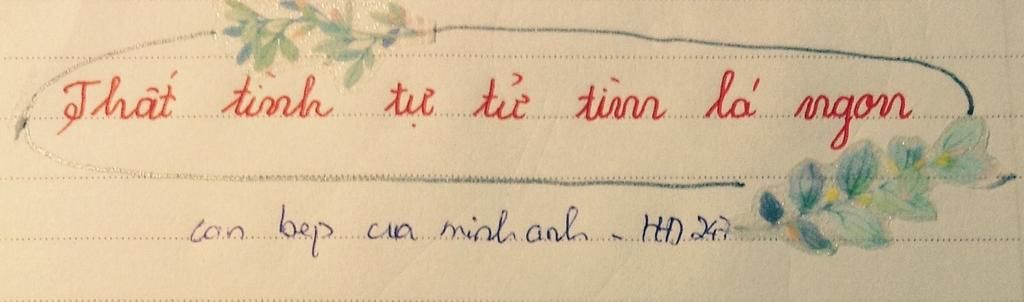 Thất tình tự tử tìm lá ngon
can bep cua minh anh - HD 247